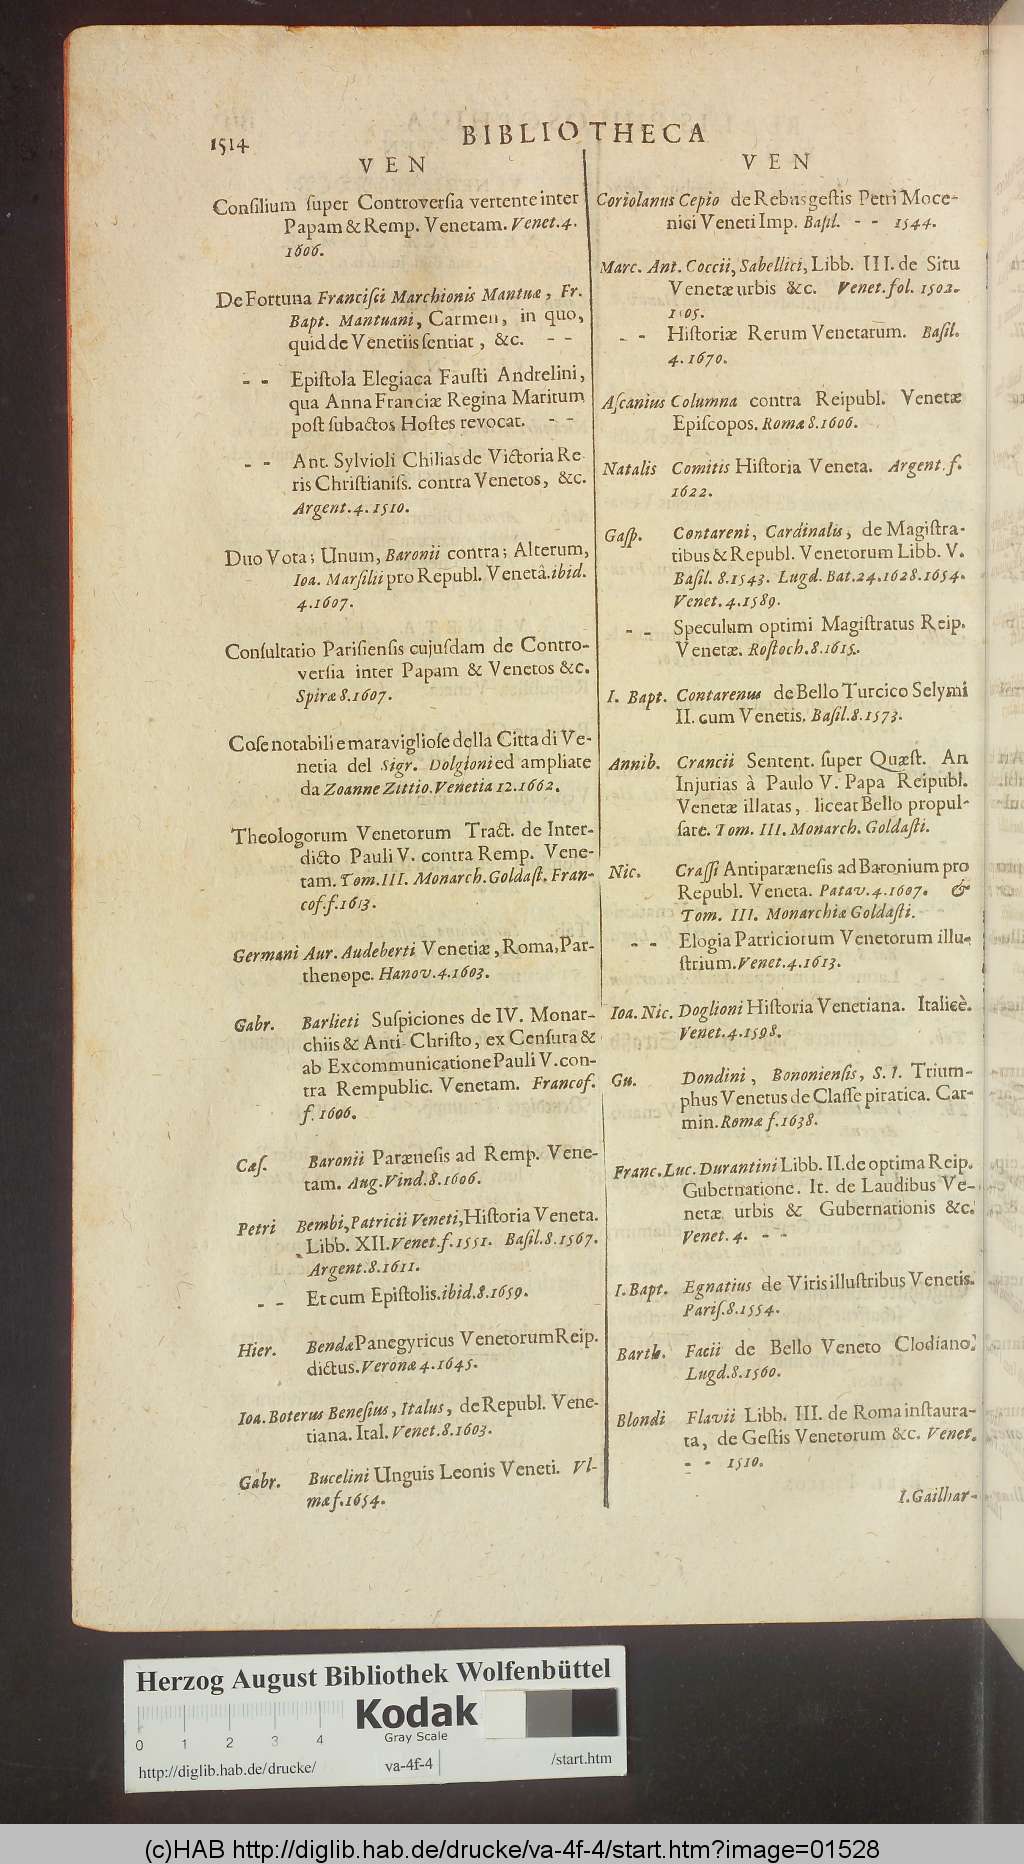 1514
BIBLIOTHECA
VEN
Consilium super Controversia vertente inter
Papam & Remp. Venetam. Venet.4.
1606.
De Fortuna Francisci Marchionis Mantuæ, Fr.
Bapt. Mantuani, Carmen, in quo,
quid de Venetiis sentiat, &c. - -
- - Epistola Elegiaca Fausti Andrelini,
qua Anna Franciæ Regina Maritum
post subactos Hostes revocat. - -
- - Ant. Sylvioli Chilias de Victoria Re
ris Christianiss. contra Venetos, &c.
Argent.4.1510.
Duo Vota; Unum, Baronii contra; Alterum,
Ioa. Marsilii pro Republ. Venetâ.ibid.
4.1607.
Consultatio Parisiensis cujusdam de Contro-
versia inter Papam & Venetos &c.
Spiræ 8.1607.
Cose notabili e maravigliose della Citta di Ve-
netia del Sigr. Dolgioni ed ampliate
da Zoanne Zittio.Venetia 12.1662.
Theologorum Venetorum Tract. de Inter-
dicto Pauli V. contra Remp. Vene-
tam. Tom.III. Monarch.Goldast. Fran-
cof.f.1613.
Germani Aur. Audeberti Venetiæ, Roma, Par-
thenope. Hanov.4.1603.
Gabr. Barlieti Suspiciones de IV. Monar-
chiis & Anti-Christo, ex Censura &
ab Excommunicatione Pauli V. con-
tra Rempublic. Venetam. Francof.
f.1606.
Cæs. Baronii Parænesis ad Remp. Vene-
tam. Aug.Vind.8.1606.
Petri Bembi, Patricii Veneti, Historia Veneta.
Libb. XII.Venet.f.1551. Basil.8.1567.
Argent.8.1611.
- - Et cum Epistolis.ibid.8.1659.
Hier. Bendæ Panegyricus Venetorum Reip.
dictus.Veronæ 4.1645.
Ioa. Boterus Benesius, Italus, de Republ. Vene-
tiana. Ital. Venet.8.1603.
Gabr. Bucelini Unguis Leonis Veneti. Vl-
mæ f.1654.
VEN
Coriolanus Cepio de Rebus gestis Petri Moce-
nici Veneti Imp. Basil. - - 1544.
Marc. Ant. Coccii, Sabellici, Libb. III. de Situ
Venetæ urbis &c. Venet.fol. 1502.
1505.
- - Historiæ Rerum Venetarum. Basil.
4.1670.
Ascanius Columna contra Reipubl. Venetæ
Episcopos. Romæ 8.1606.
Natalis Comitis Historia Veneta. Argent.f.
1622.
Gasp. Contareni, Cardinalis, de Magistra-
tibus & Republ. Venetorum Libb. V.
Basil. 8.1543. Lugd. Bat.24.1628.1654.
Venet.4.1589.
- - Speculum optimi Magistratus Reip.
Venetæ. Rostoch.8.1615.
I. Bapt. Contarenus de Bello Turcico Selymi
II. cum Venetis. Basil.8.1573.
Annib. Crancii Sentent. super Quæst. An
Injurias à Paulo V. Papa Reipubl.
Venetæ illatas, liceat Bello propul-
sare. Tom. III. Monarch. Goldasti.
Nic. Crassi Antiparænesis ad Baronium pro
Republ. Veneta. Patav.4.1607. &
Tom. III. Monarchiæ Goldasti.
- - Elogia Patriciorum Venetorum illu-
strium.Venet.4.1613.
Ioa. Nic. Doglioni Historia Venetiana. Italicè.
Venet.4.1598.
Gu. Dondini, Bononiensis, S. I. Trium-
phus Venetus de Classe piratica. Car-
min. Romæ f.1638.
Franc. Luc. Durantini Libb. II. de optima Reip.
Gubernatione. It. de Laudibus Ve-
netæ urbis & Gubernationis &c.
Venet.4. - -
I. Bapt. Egnatius de Viris illustribus Venetis.
Paris.8.1554.
Barth. Facii de Bello Veneto Clodiano.
Lugd.8.1560.
Blondi Flavii Libb. III. de Roma instaura-
ta, de Gestis Venetorum &c. Venet.
- - 1510.
I. Gailhar-
Herzog August Bibliothek Wolfenbüttel
Kodak
Gray Scale
0 1 2 3 4
http://diglib.hab.de/drucke/ va-4f-4 /start.htm
(c)HAB http://diglib.hab.de/drucke/va-4f-4/start.htm?image=01528